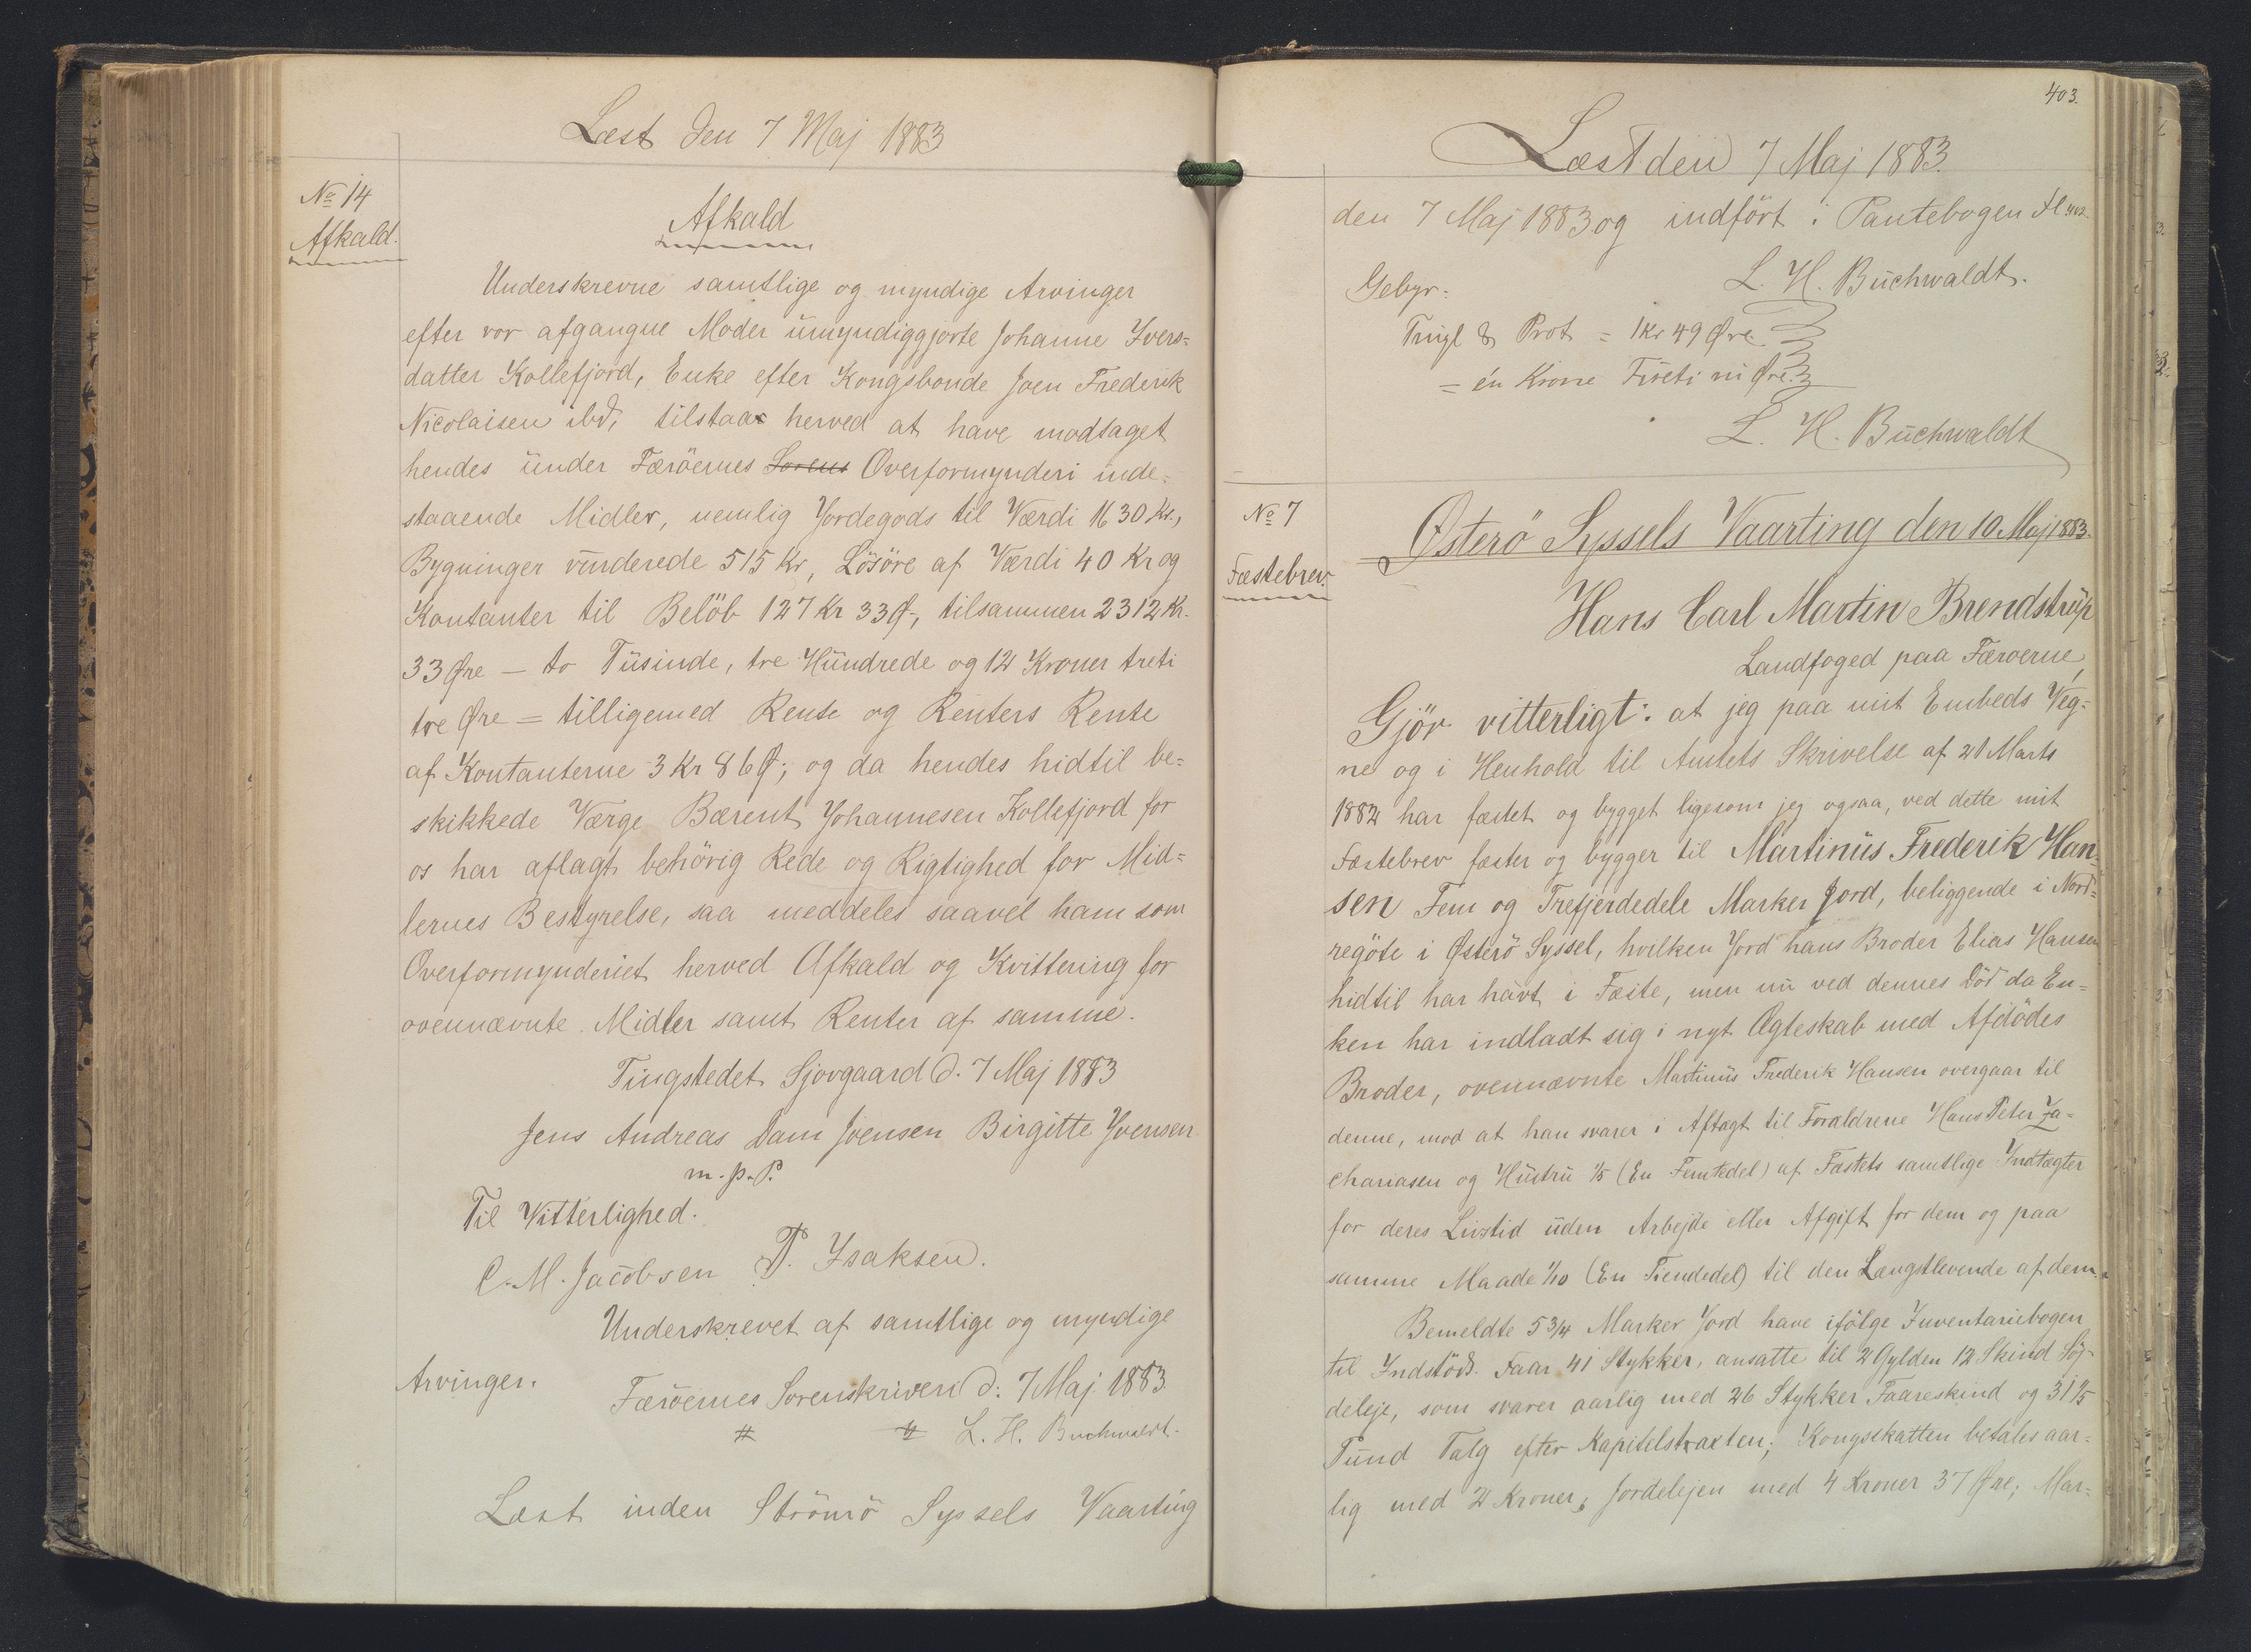 Læst den 7 Maj 1883
No 14
Afkald.
Afkald
Underskrevne samtlige og myndige Arvinger
efter vor afgangne Moder umyndiggjorte Johanne Ivers=
datter Kollefjord, Enke efter Kongsbonde Joen Frederik
Nicolaisen ibd, tilstaar herved at have modtaget
hendes under Færöernes Sorens Overformynderi inde=
staaende Midler, nemlig Jordegods til Værdi 1630 Kr.,
Bygninger vurderede 515 Kr, Lösöre af Værdi 40 Kr og
Kontanter til Belöb 127 Kr 33 Ø, tilsammen 2312 Kr.
33 Øre — to Tusinde, tre Hundrede og 12 Kroner treti
tre Øre = tilligemed Rente og Renters Rente
af Kontanterne 3 Kr 86 Ø; og da hendes hidtil be=
skikkede Værge Bærent Johannesen Kollefjord for
os har aflagt behörig Rede og Rigtighed for Mid=
lernes Bestyrelse, saa meddeles saavel ham som
Overformynderiet herved Afkald og Kvittering for
ovennævnte Midler samt Renter af samme.
Tingstedet Sjovgaard d. 7 Maj 1883
Jens Andreas Dam Joensen Birgitte Joensen
m. p. P.
Til Vitterlighed.
C. M. Jacobsen P. Isaksen.
Underskrevet af samtlige og myndige
Arvinger.
Færöernes Sorenskriveri d: 7 Maj 1883.
L. H. Buchwaldt.
Læst inden Strömö Syssels Vaarting
403.
Læst den 7 Maj 1883.
den 7 Maj 1883 og indfört i Pantebogen fl 402.
L. H. Buchwaldt.
Gebyr:
Tingl & Prot = 1 Kr 49 Øre.
= én Krone Fireti ni Øre.
L. H. Buchwaldt
No 7
Fæstebrev.
Østerö Syssels Vaarting den 10. Maj 1883.
Hans Carl Martin Brendstrup
Landfoged paa Færoerne,
Gjör vitterligt: at jeg paa mit Embeds Veg=
ne og i Henhold til Amtets Skrivelse af 21 Marts
1882 har fæstet og bygget ligesom jeg ogsaa, ved dette mit
Fæstebrev fæster og bygger til Martinus Frederik Han=
sen Fem og Trefjerdedele Marker Jord, beliggende i Nord=
regöte i Østerö Syssel, hvilken Jord hans Broder Elias Hansen
hidtil har havt i Fæste, men nu ved dennes Död da En=
ken har indladt sig i nyt Ægteskab med Afdödes
Broder, ovennævnte Martinus Frederik Hansen overgaar til
denne, mod at han svarer i Aftægt til Forældrene Hans Peter Za=
chariasen og Hustru 1/5 (En Femtedel) af Fæstets samtlige Indtægter
for deres Livstid uden Arbejde eller Afgift for dem og paa
samme Maade 1/10 (En Tiendedel) til den Længstlevende af dem.
Bemeldte 5 3/4 Marker Jord have ifölge Inventariebogen
til Indstöds Faar 41 Stykker, ansatte til 2 Gylden 12 Skind Söj=
deleje, som svarer aarlig med 26 Stykker Faareskind og 31 1/5
Pund Talg efter Kapitelstaxten; Kongsskatten betales aar=
lig med 2 Kroner; Jordelejen med 4 Kroner 37 Øre; Mar=